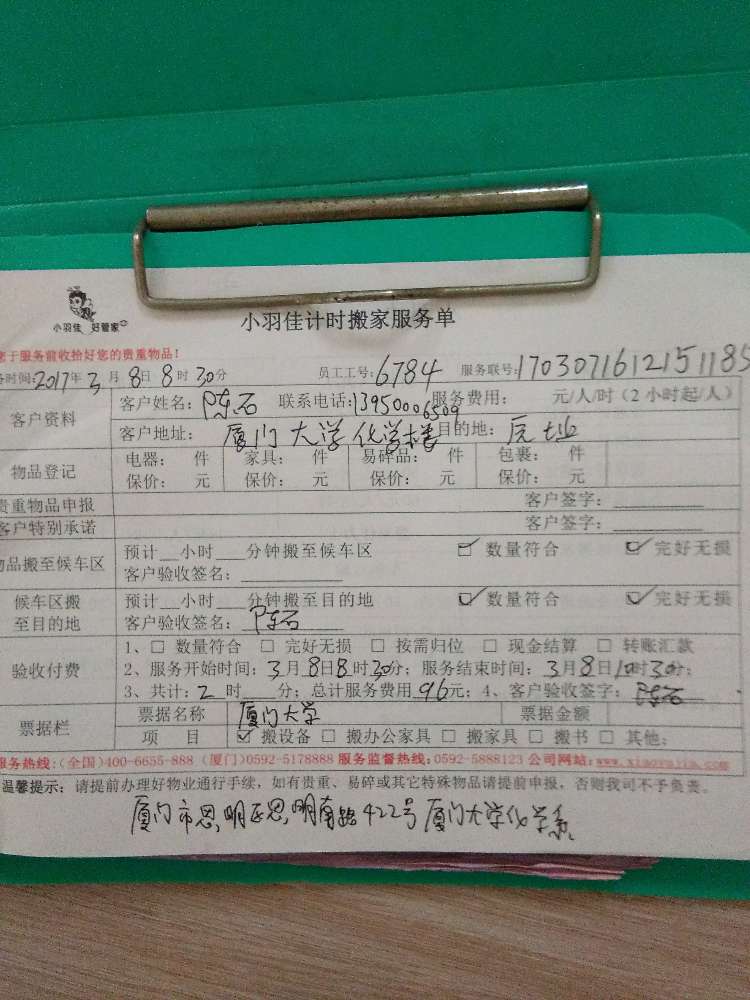 小羽佳 好管家
小羽佳计时搬家服务单
于服务前收拾好您的贵重物品!
时间:2017年3月8日8时30分 员工工号:6784 服务联号:1703071612151185
客户资料 客户姓名:陈石 联系电话:13950006509 服务费用: 元/人/时(2小时起/人)
客户地址: 厦门大学化学楼 目的地:
物品登记 电器: 件 家具: 件 易碎品: 件 包裹: 件
保价: 元 保价: 元 保价: 元 保价: 元
贵重物品申报 客户签字:
客户特别承诺 客户签字:
物品搬至候车区 预计__小时___分钟搬至候车区 ☑ 数量符合 ☑ 完好无损
客户验收签名:
候车区搬至目的地 预计__小时___分钟搬至目的地 ☑ 数量符合 ☑ 完好无损
客户验收签名: 陈石
验收付费 1、□ 数量符合 □ 完好无损 □ 按需归位 □ 现金结算 □ 转账汇款
2、服务开始时间:3月8日8时30分; 服务结束时间:3月8日10时30分;
3、共计:2时___分;总计服务费用96元;4、客户验收签字:陈石
票据栏 票据名称 厦门大学 票据金额
项 目 ☑ 搬设备 □ 搬办公家具 □ 搬家具 □ 搬书 □ 其他:
服务热线:(全国)400-6655-888 (厦门)0592-5178888 服务监督热线:0592-5888123 公司网站:www.xiaoyujia.com
温馨提示:请提前办理好物业通行手续,如有贵重、易碎或其它特殊物品请提前申报,否则我司不予负责。
厦门市思明区思明南路422号厦门大学化学系